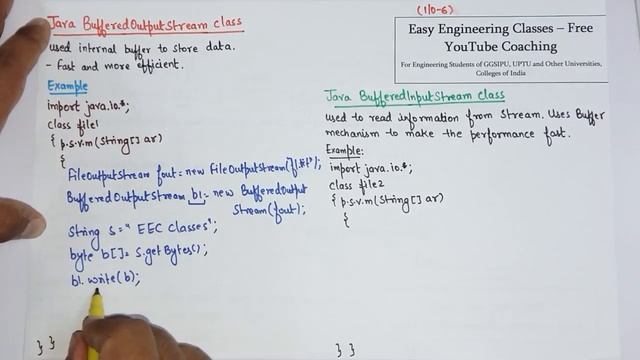 (I/O-6)
Java BufferedOutputStream class
used internal buffer to store data.
- Fast and more efficient.
Example
import java.io.*;
class file1
{ p.s.v.m(String[] ar)
{
FileOutputStream fout=new FileOutputStream("f1.txt");
BufferedOutputStream b1=new BufferedOutput
Stream(fout);
String s=" EEC classes";
byte b[]= s.getBytes();
b1.write(b);
} }
Easy Engineering Classes – Free
YouTube Coaching
For Engineering Students of GGSIPU, UPTU and Other Universities,
Colleges of India
Java BufferedInputStream class
used to read information from Stream. Uses Buffer
mechanism to make the performance fast.
Example:
import java.io.*;
class file2
{ p.s.v.m(String[] ar)
{
} }